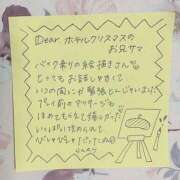 Dear ホテルクリスマスの
お兄サマ
バイク乗りの絵描きさん
とってもお話しやすくて
いつの間にか緊張とんじゃいました
プレイ前のマッサージも
ほめてもらえて嬉しかった
いっぱい攻められて